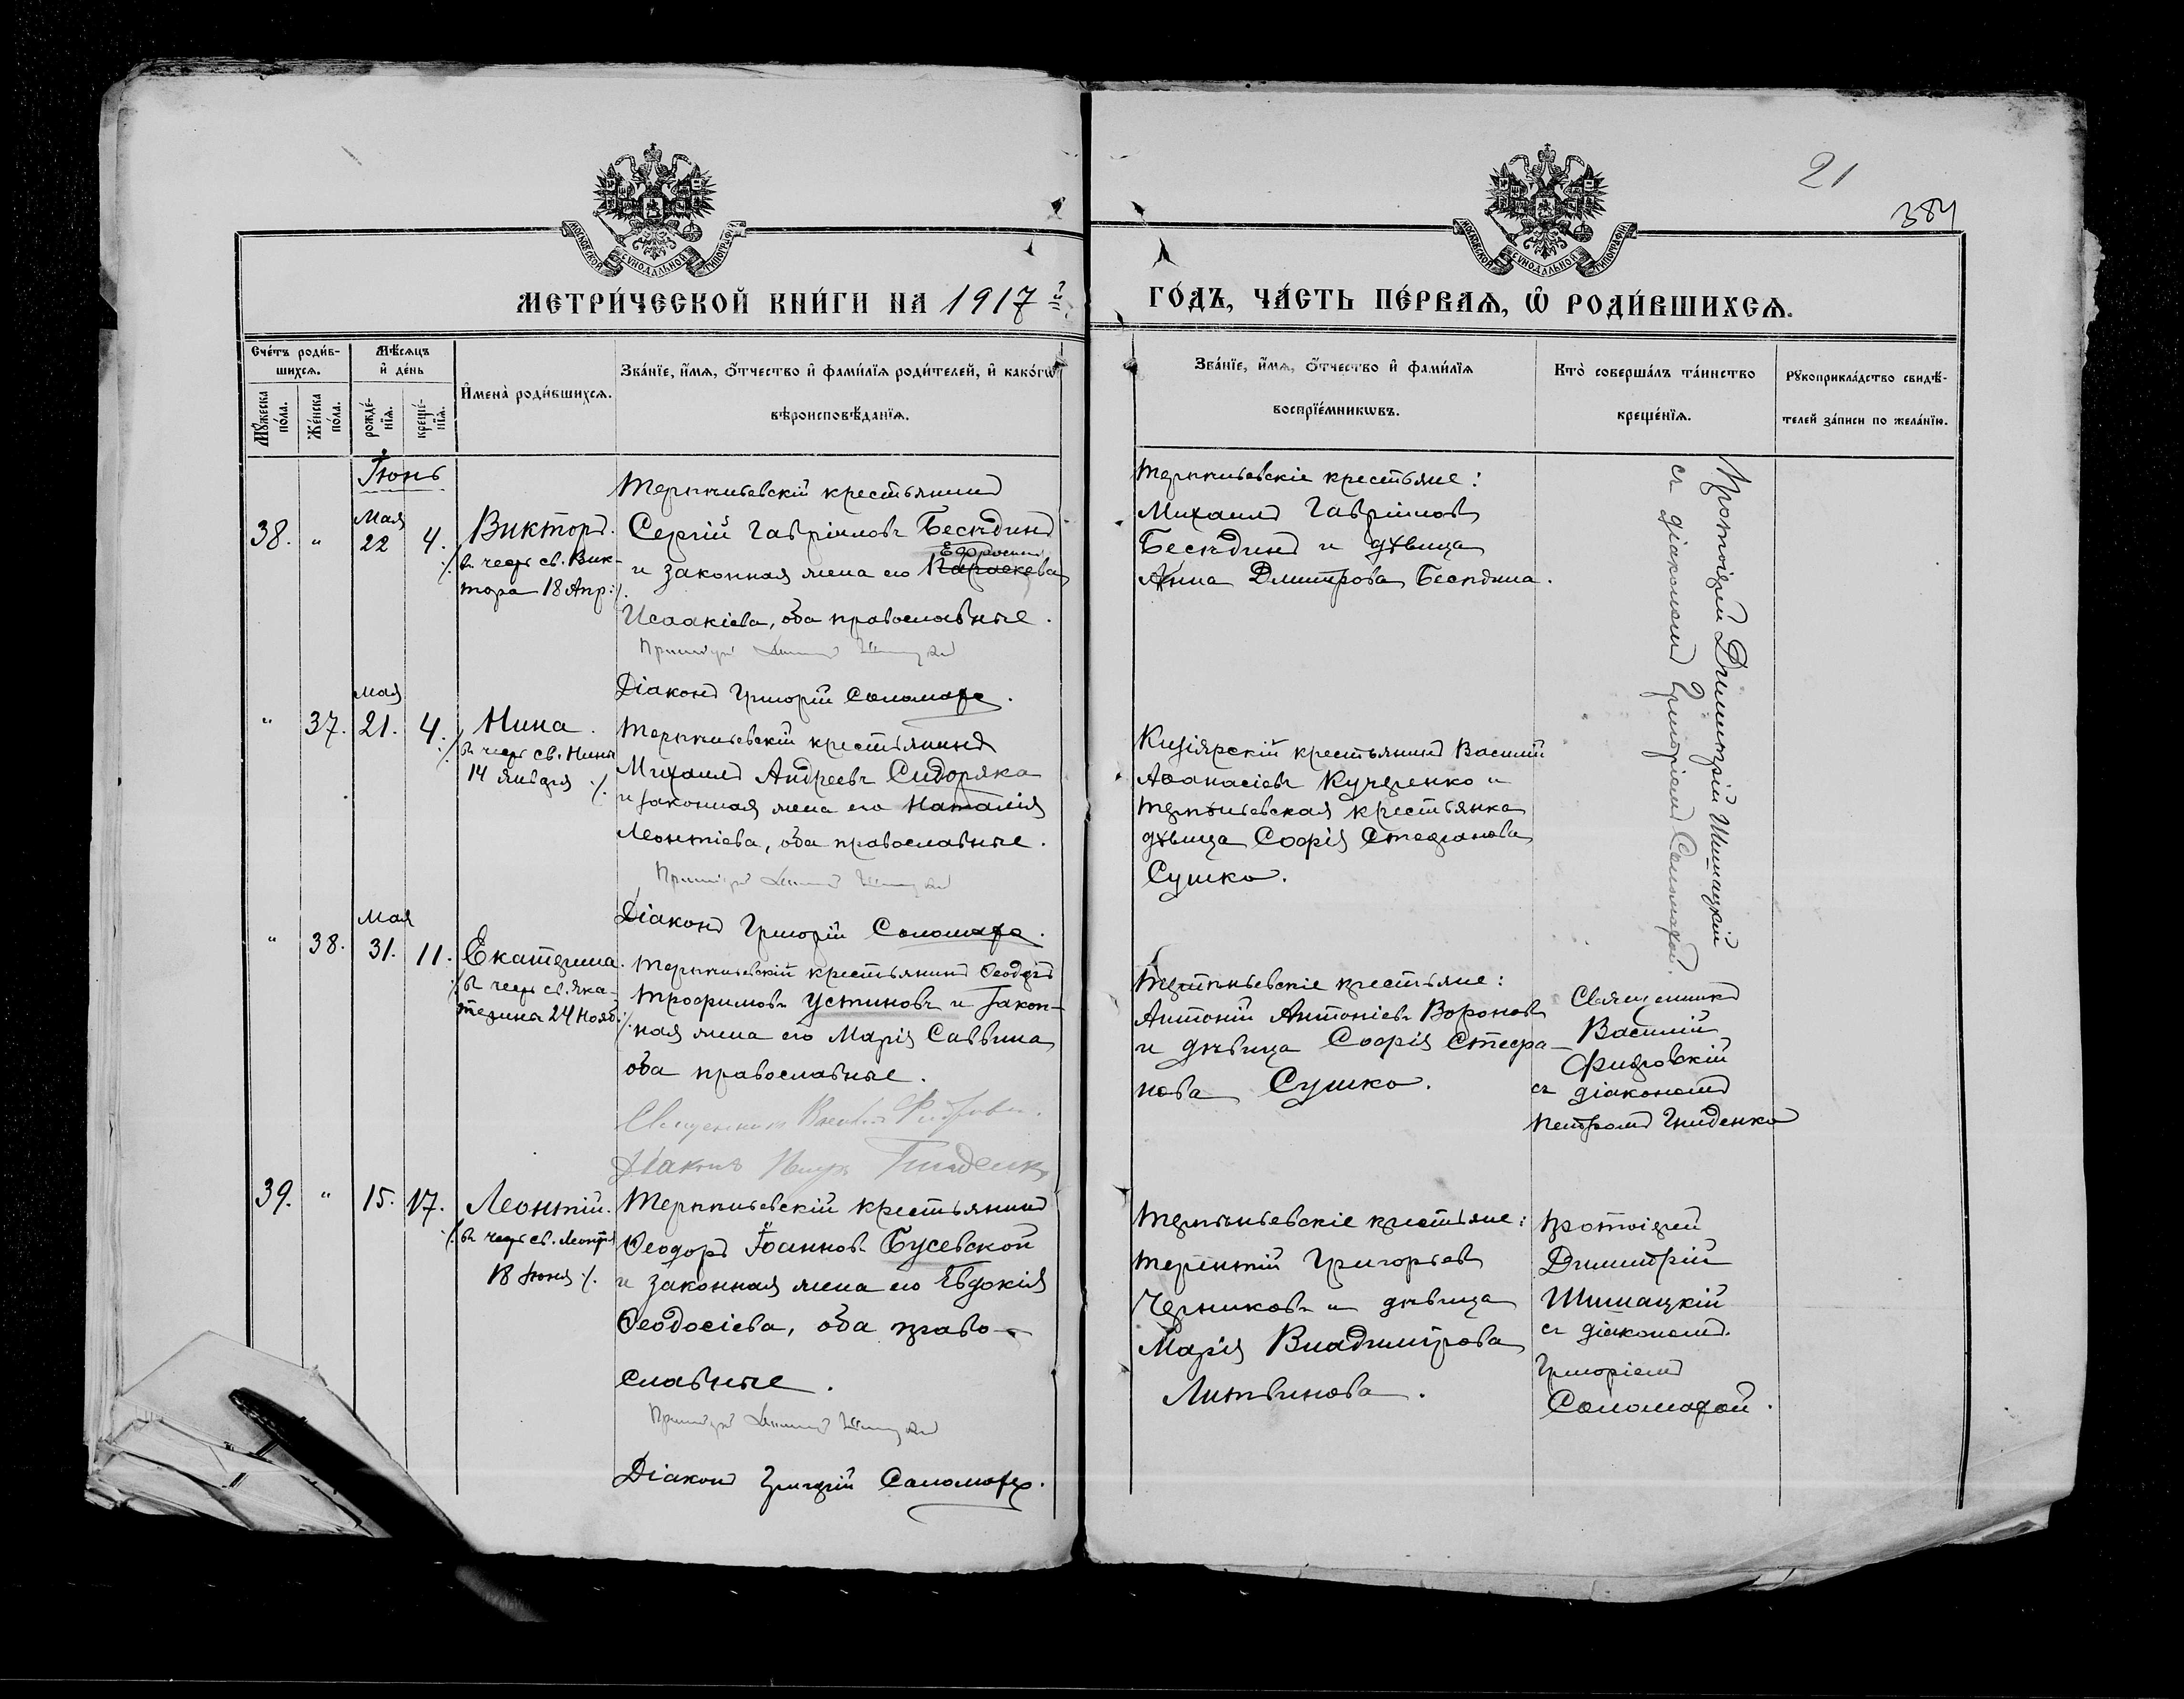 21
384
МОСКОВСКОЙ СѴНОДАЛЬНОЙ ТИПОГРАФІИ
МОСКОВСКОЙ СѴНОДАЛЬНОЙ ТИПОГРАФІИ
МЕТРИ́ЧЕСКОЙ КНИ́ГИ НА 1917й
ГО́ДЪ, ЧА́СТЬ ПЕ́РВАѦ, Ѿ РОДИ́ВШИХСѦ.
Сче́тъ роди́в-
шихсѧ.
Мꙋ́жеска по́ла.
Же́нска по́ла.
Мѣ́сѧцъ
и҆ де́нь
рожде́-
нїѧ.
креще́-
нїѧ.
И҆мена̀ роди́вшихсѧ.
Зва́нїе, и҆́мѧ, ѻ҆́тчество и҆ фами́лїѧ роди́телей, и҆ како́гѡ
вѣроисповѣ́данїѧ.
Зва́нїе, и҆́мѧ, ѻ҆́тчество и҆ фами́лїѧ
воспрїе́мникѡвъ.
Кто̀ соверша́лъ та́инство
креще́нїѧ.
Рꙋкоприкла́дство свидѣ́-
телей за́писи по жела́нїю.
Іюнь
38. " Мая 22 4.
Викторъ.
/:въ честь св. Вик-
тора 18 Апр:/.
Терпѣньевскій крестьянинъ
Сергій Гавріиловъ Бесѣдинъ
Ефросинія
и законная жена его Параскева
Исаакіева, оба православные.
Протоіерей Димитрій Шишацкій
Діаконъ Григорій Соломаха.
Терпѣньевскіе крестьяне:
Михаилъ Гавріиловъ
Бесѣдинъ и дѣвица
Анна Дмитрова Бесѣдина.
Протоіерей Димитрій Шишацкій
съ діакономъ Григоріемъ Соломахой.
" 37. Мая 21. 4.
Нина.
/:въ честь св. Нины
14 Января :/.
Терпѣньевскій крестьянинъ
Михаилъ Андреевъ Сидоряка
и законная жена его Наталія
Леонтіева, оба православные.
Протоіерей Димитрій Шишацкій
Діаконъ Григорій Соломаха.
Кизіярскій крестьянинъ Василій
Аѳанасіевъ Кучеренко и
Терпѣньевская крестьянка
дѣвица Софія Стефанова
Сушко.
" 38. Мая 31. 11.
Екатерина.
/:въ честь св. Ека-
терины 24 Нояб:/.
Терпѣньевскій крестьянинъ Ѳеодоръ
Трофимовъ Устиновъ и закон-
ная жена его Марія Саввина
оба православные.
Священникъ Василій
Діаконъ Петръ Гниденко
Терпѣньевскіе крестьяне:
Антоній Антоніевъ Вороновъ
и дѣвица Софія Стефа-
нова Сушко.
Священникъ
Василій
съ діакономъ
Петромъ Гниденко
39. " 15. 17.
Леонтій.
/:въ честь св. Леонтія
18 Іюня :/.
Терпѣньевскій крестьянинъ
Ѳеодоръ Іоанновъ Бусевской
и законная жена его Евдокія
Ѳеодосіева, оба право-
славные.
Протоіерей Димитрій Шишацкій
Діаконъ Григорій Соломаха.
Терпѣньевскіе крестьяне:
Терентій Григорьевъ
Черниковъ и дѣвица
Марія Владимірова
Литвинова.
Протоіерей
Димитрій
Шишацкій
съ діакономъ
Григоріемъ
Соломахой.